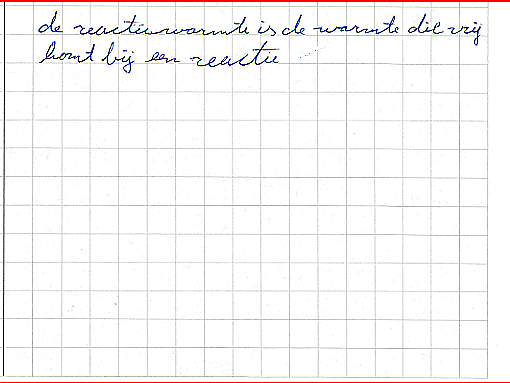 de reactiewarmte is de warmte die vrij
komt bij een reactie